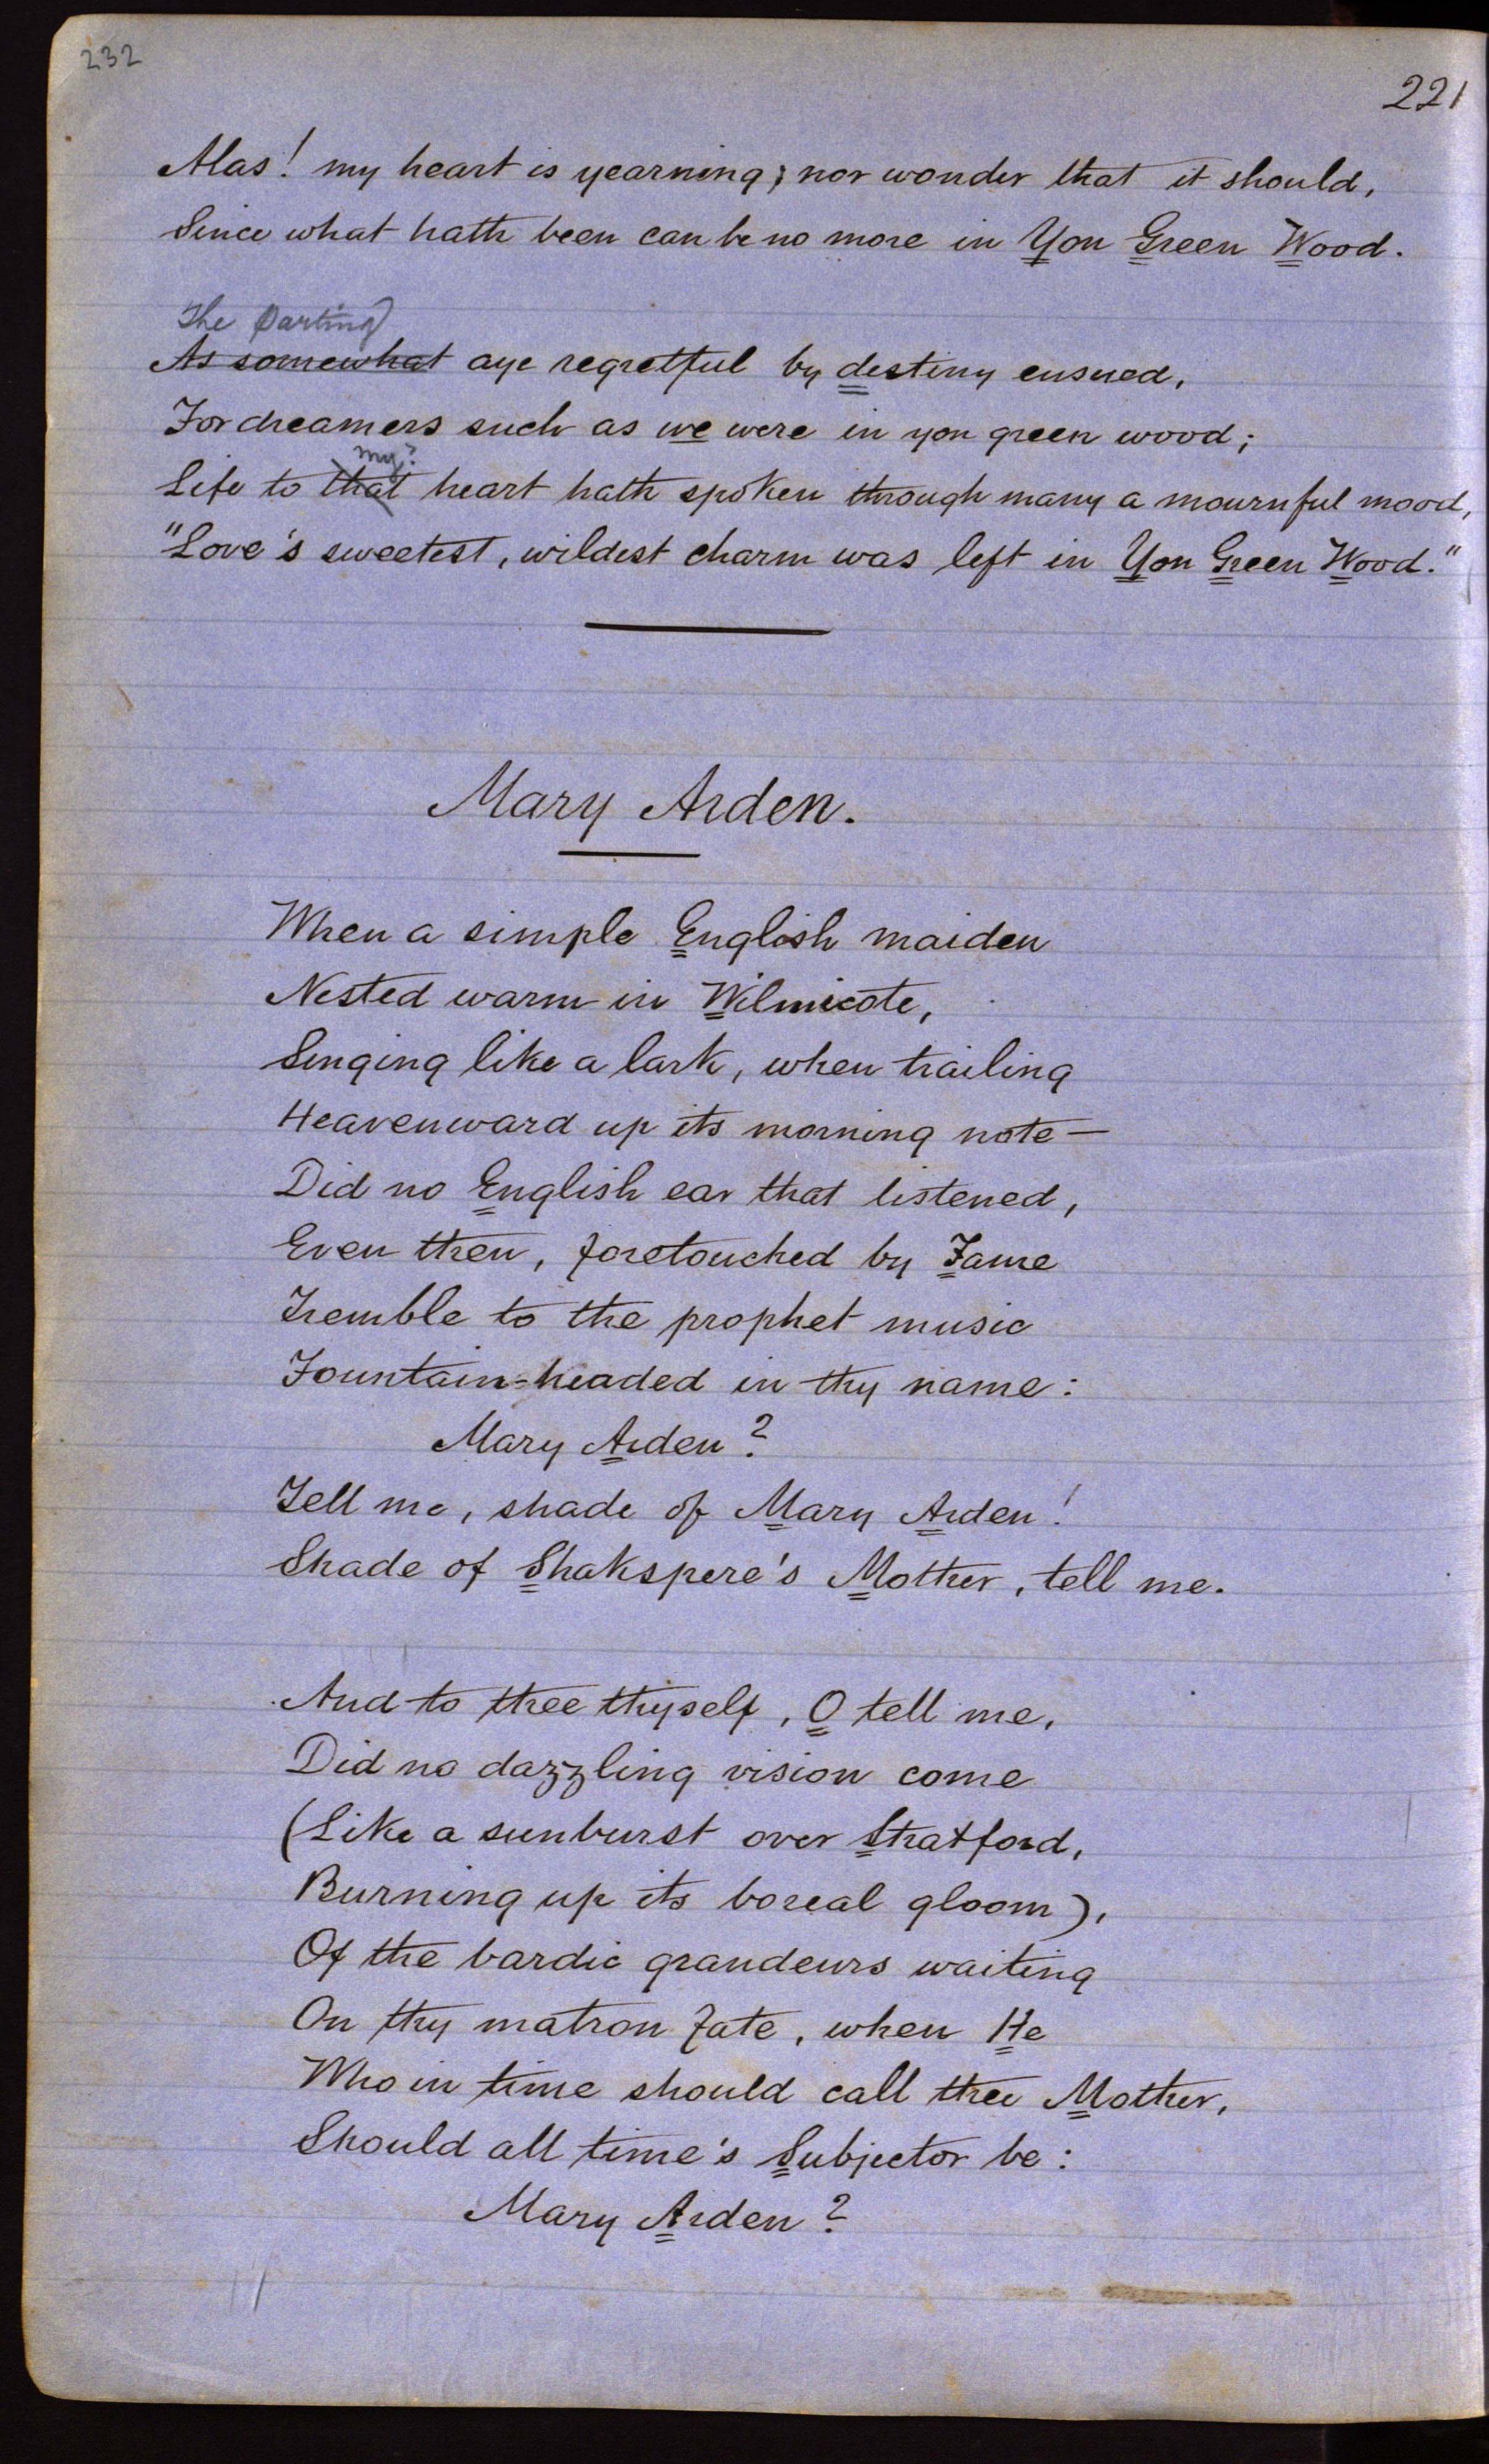 232
221
Alas! my heart is yearning; nor wonder that it should,
Since what hath been can be no more in Yon Green Wood.
The Parting
As somewhat aye regretful by destiny ensued,
For dreamers such as we were in yon green wood;
my?
Life to that heart hath spoken through many a mournful mood,
"Love's sweetest, wildest charm was left in Yon Green Wood."
Mary Arden.
When a simple English maiden
Nested warm in Wilmicote,
Singing like a lark, when trailing
Heavenward up its morning note—
Did no English ear that listened,
Even then, foretouched by Fame
Tremble to the prophet music
Fountain-headed in thy name:
Mary Arden?
Tell me, shade of Mary Arden!
Shade of Shakspere's Mother, tell me.
And to thee thyself, O tell me,
Did no dazzling vision come
(Like a sunburst over Stratford,
Burning up its boreal gloom),
Of the bardic grandeurs waiting
On thy matron fate, when He
Who in time should call thee Mother,
Should all time's Subjector be:
Mary Arden?